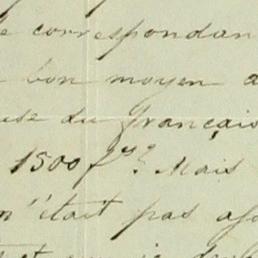 e correspondan
bon moyen a
use du françai
1500 f rs? Mais
n'était pas a